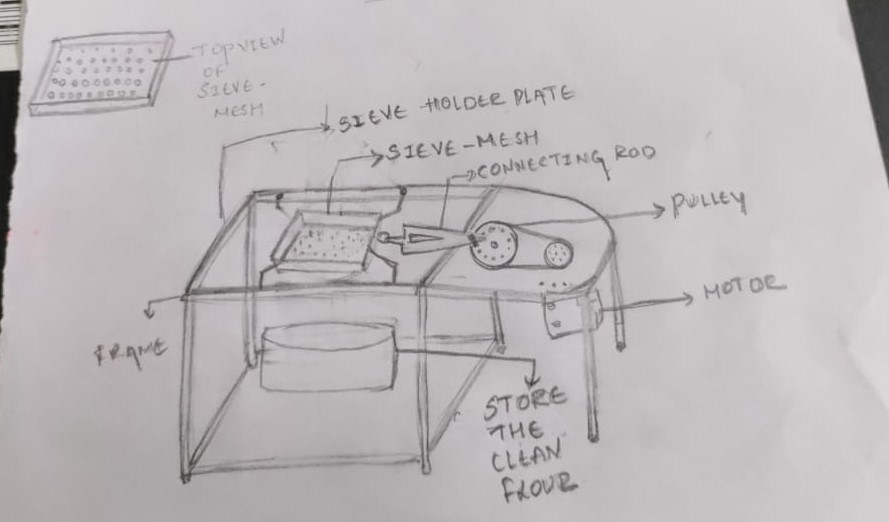 TOPVIEW
OF
SIEVE-
MESH
SIEVE HOLDER PLATE
SIEVE-MESH
CONNECTING ROD
PULLEY
MOTOR
FRAME
STORE
THE
CLEAN
FLOUR